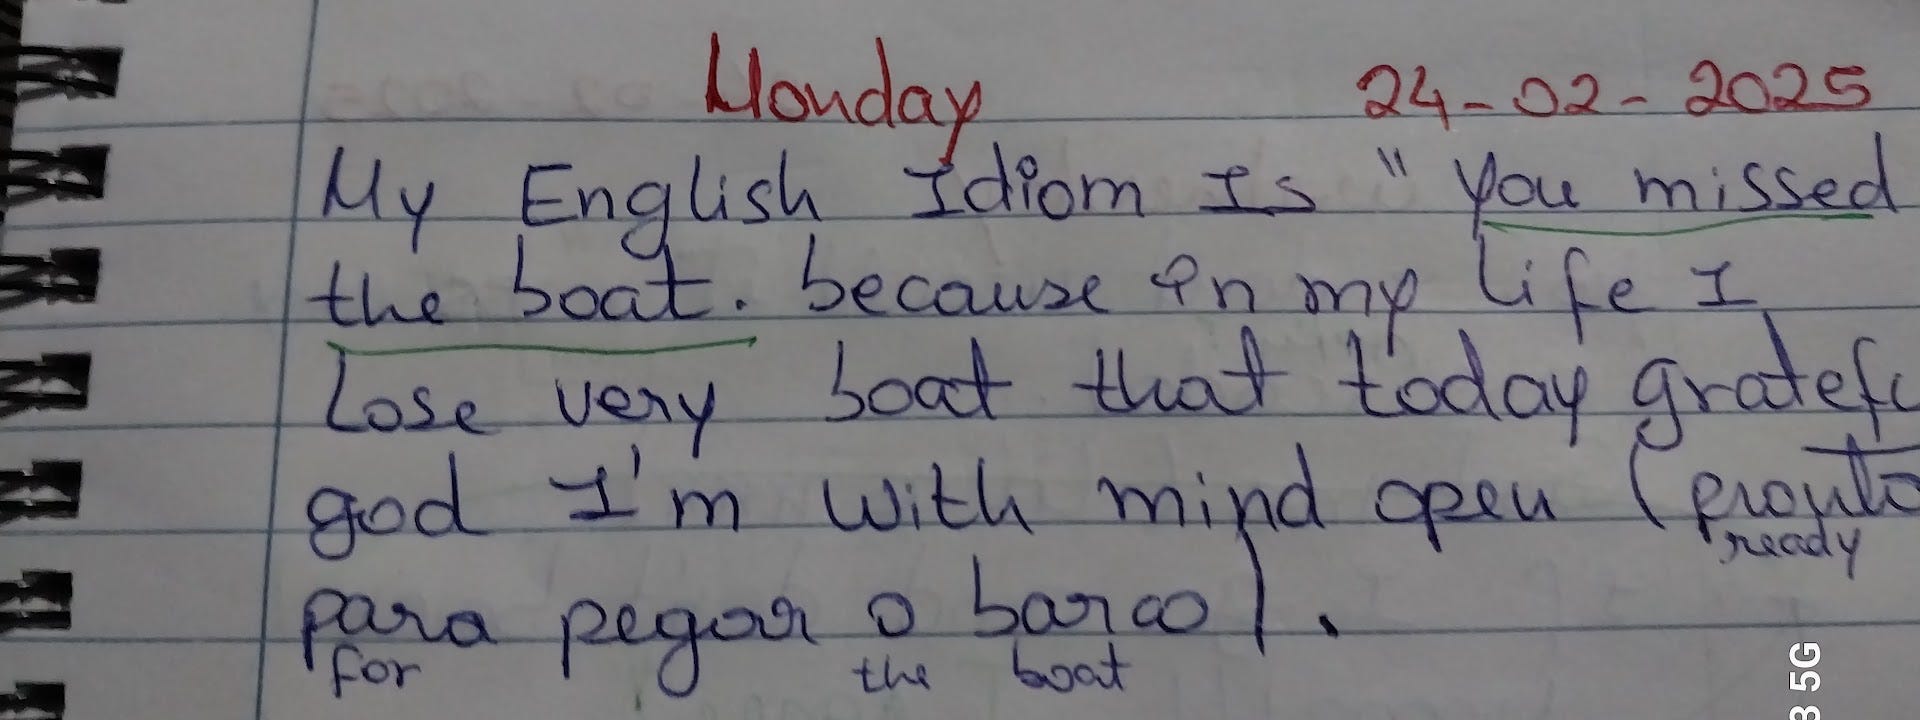 Monday 24-02-2025
My English Idiom Is " You missed
the boat. because in my life I
Lose very boat that today gratefu
god I'm with mind open (pronto
ready
para pegar o barco).
for the boat
3 5G